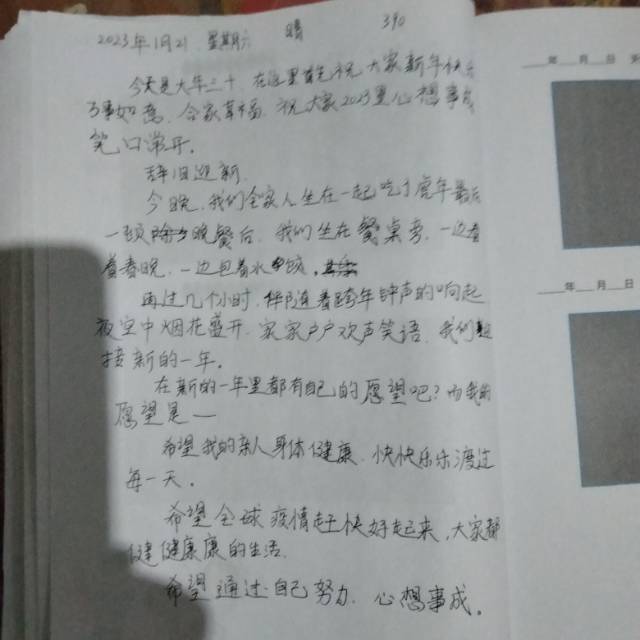 2023年1月21 星期六 晴 390
今天是大年三十，在这里首先祝大家新年快乐
万事如意，合家幸福，祝大家2023里心想事成
笑口常开。
辞旧迎新
今晚，我们全家人坐在一起吃了虎年最后
一顿晚餐后，我们坐在餐桌旁，一边看
着春晚，一边包着水饺。
再过几个小时，伴随着跨年钟声的响起
夜空中烟花盛开，家家户户欢声笑语，我们迎
接新的一年。
在新的一年里都有自己的愿望吧？而我的
愿望是一
希望我的亲人身体健康，快快乐乐渡过
每一天。
希望全球疫情赶快好起来，大家都
健健康康的生活。
希望通过自己努力，心想事成。
年 月 日
年 月 日